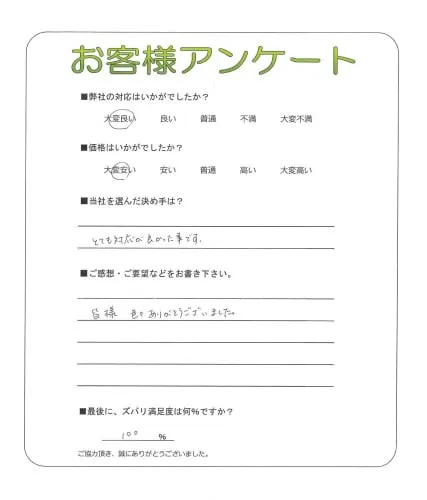 お客様アンケート
■弊社の対応はいかがでしたか？
大変良い 良い 普通 不満 大変不満
■価格はいかがでしたか？
大変安い 安い 普通 高い 大変高い
■当社を選んだ決め手は？
とても対応が良かった事です。
■ご感想・ご要望などをお書き下さい。
皆様 色々ありがとうございました。
■最後に、ズバリ満足度は何％ですか？
100 ％
ご協力頂き、誠にありがとうございました。